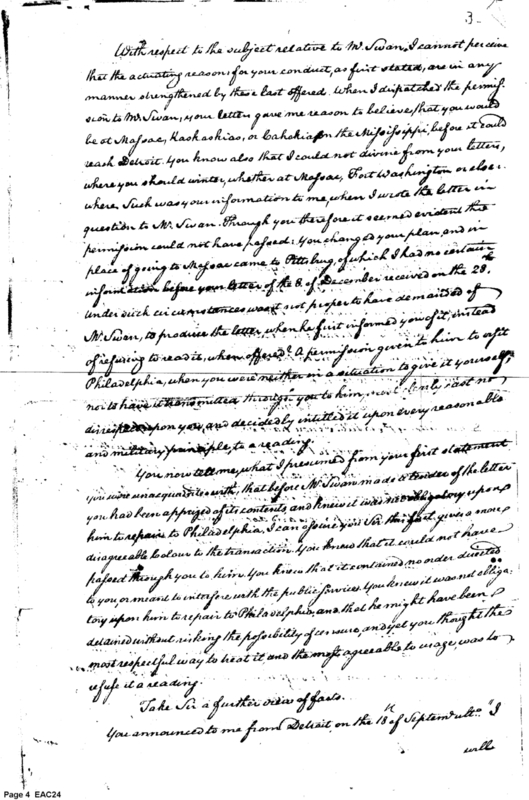 3
With respect to the subject relative to Mr. Swan, I cannot perceive
that the actuating reasons for your conduct, as first stated, are in any
manner strengthened by these last offered. When I dispatched the permis-
sion to Mr. Swan, your letters gave me reason to believe that you would
be at Massac, Kaskaskias, or Cahokia on the Mississippi, before it could
reach Detroit. You know also that I could not divine from your letters,
where you should winter, whether at Massac, Fort Washington or else-
where. Such was your information to me, when I wrote the letter in
question to Mr. Swan. Through you therefore it seemed evident the
permission could not have passed; you changed your plan, and in
place of going to Massac came to Pittsburg, of which I had no certain
information before your letter of the 8 of December received on the 28th.
Under such circumstances was it not proper to have demanded of
Mr. Swan, to produce the letter, when he first informed you of it, instead
of refusing to read it, when offered? A permission given to him to visit
Philadelphia, when you were neither in a situation to give it yourself,
nor to have it transmitted through you to him, could cast no
disrespect upon you, and decidedly intitled it upon every reasonable
and military principle, to a reading.
You now tell me, what I presumed from your first statement
you were unacquainted with, that before Mr. Swan made a tender of the letter
you had been apprized of its contents, and knew it was not obligatory upon
him to repair to Philadelphia. I can assure you Sir this fact gives a more
disagreeable colour to the transaction. You knew that it could not have
passed through you to him. You knew that it contained no order directed
to you, or meant to interfere with the public service. You knew it was not obliga-
tory upon him to repair to Philadelphia, and that he might have been
detained without risking the possibility of censure, and yet you thought the
most respectful way to treat it and the most agreeable to usage, was to
refuse it a reading.
Take Sir a further view of facts.
You announced to me from Detroit on the 18th of Septem. ulto. "I
will
Page 4 EAC24